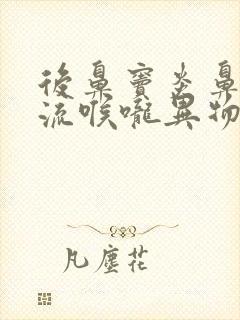 後鼻竇炎鼻
流喉嚨異物
凡塵花